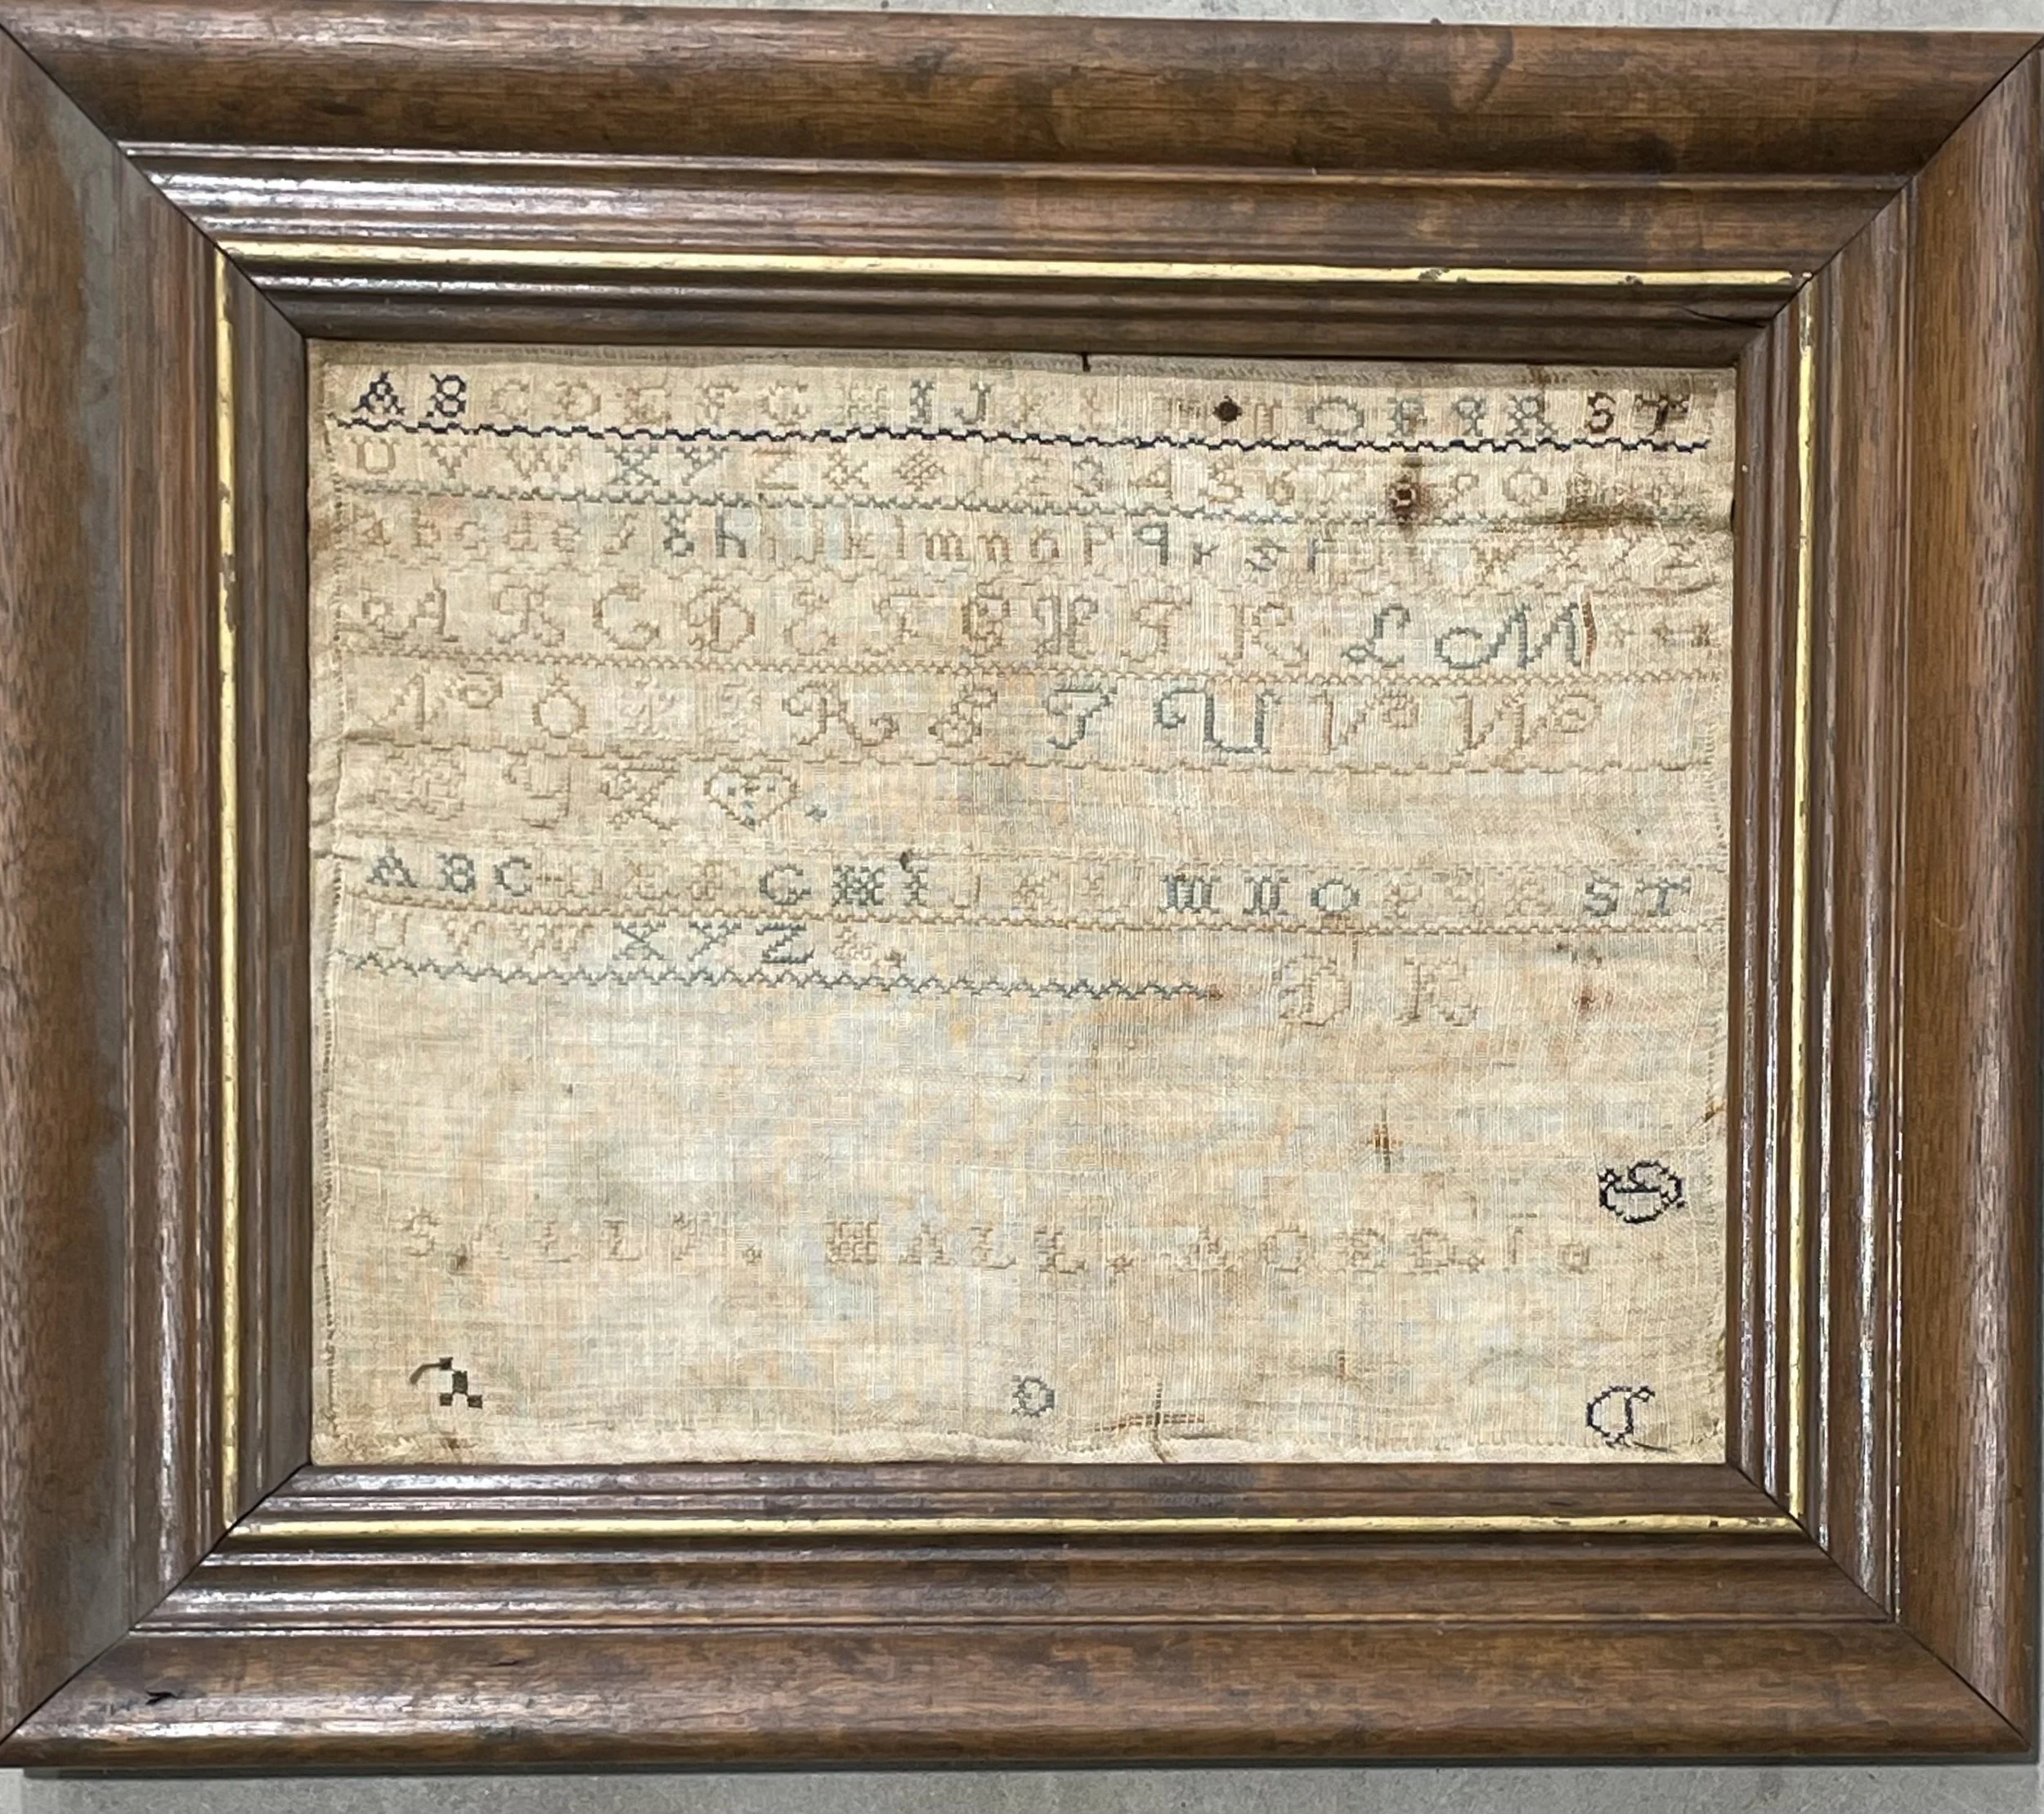 A B C D E F G H I J K L M N O P Q R S T
U V W X Y Z 1 2 3 4 5 6 7 8 9 0
a b c d e f g h i j k l m n o p q r s t u v w x y z
A B C D E F G H I K L M
N O P Q R S T U V W
X Y Z
A B C D E F G H I J K L M N O P Q R S T
U V W X Y Z &
D R
G
SALLY. HALL.
O
D